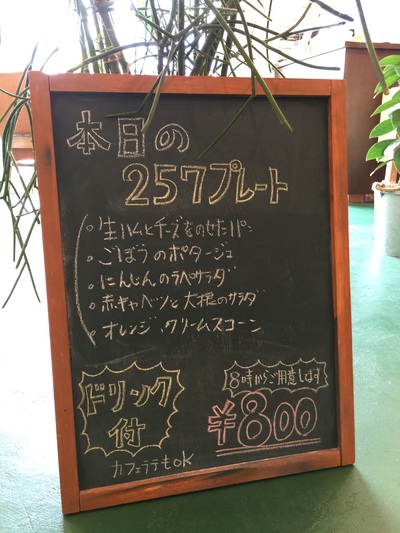 本日の
257プレート
。生ハムとチーズをのせたパン
。ごぼうのポタージュ
。にんじんのラペサラダ
。赤キャベツと大根のサラダ
。オレンジ.クリームスコーン
ドリンク
付
カフェラテもOK
8時からご用意します
¥800